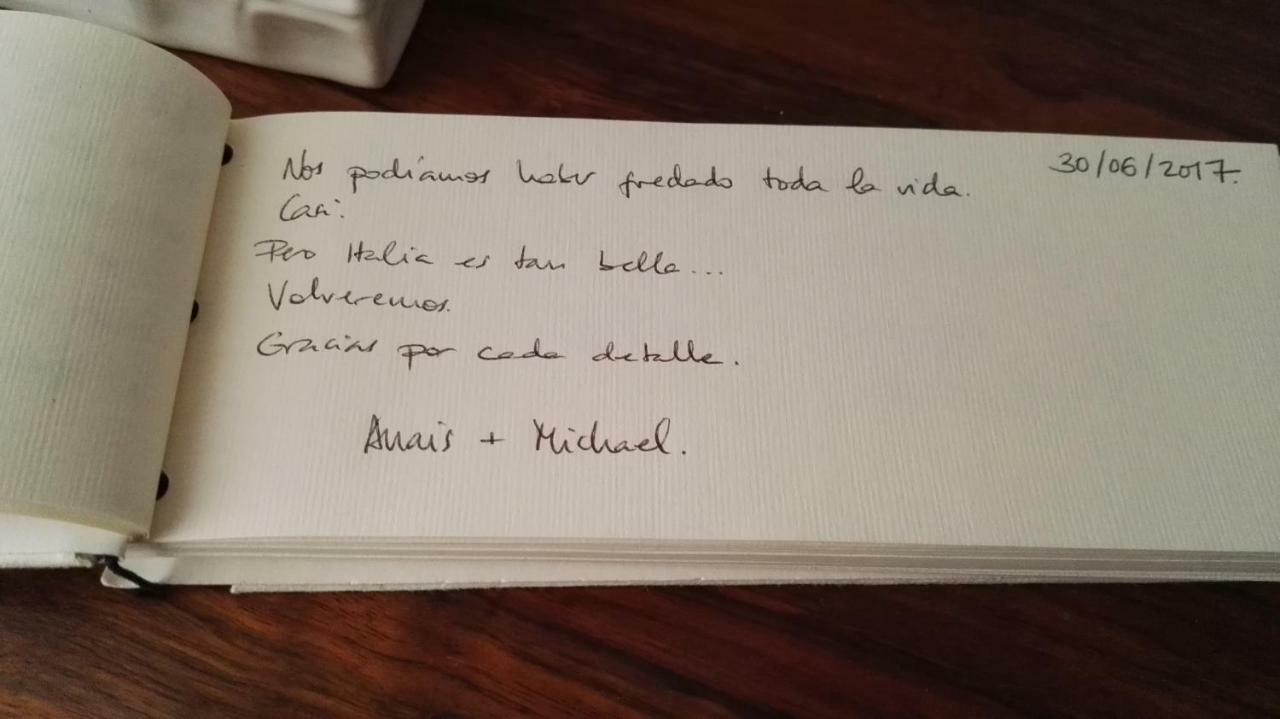 Nos podíamos haber quedado toda la vida.
30/06/2017.
Casi.
Pero Italia es tan bella...
Volveremos.
Gracias por cada detalle.
Anais + Michael.